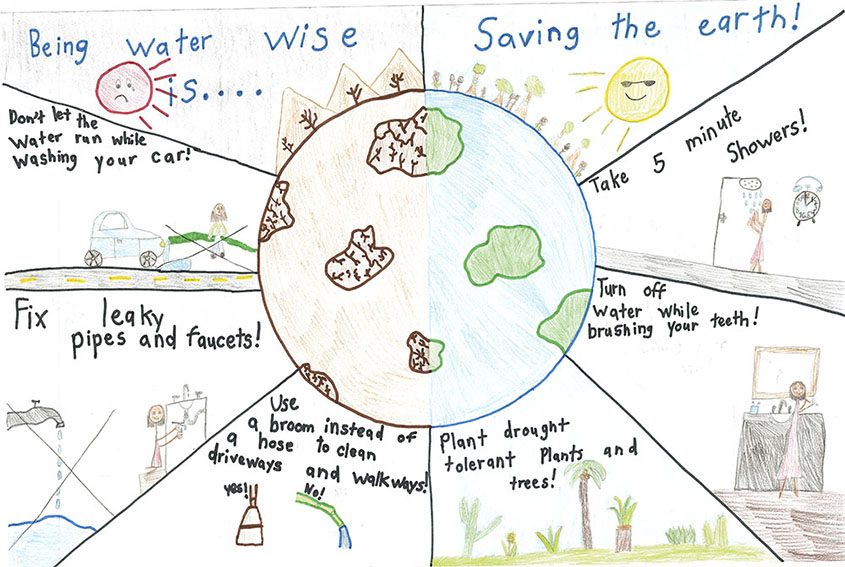 Being water wise
is....
Saving the earth!
Don't let the
water run while
washing your car!
Take 5 minute
Showers!
Fix leaky
pipes and faucets!
Turn off
water while
brushing your teeth!
Use
a broom instead of
a hose to clean
driveways and walkways!
yes!
No!
Plant drought
tolerant Plants and
trees!